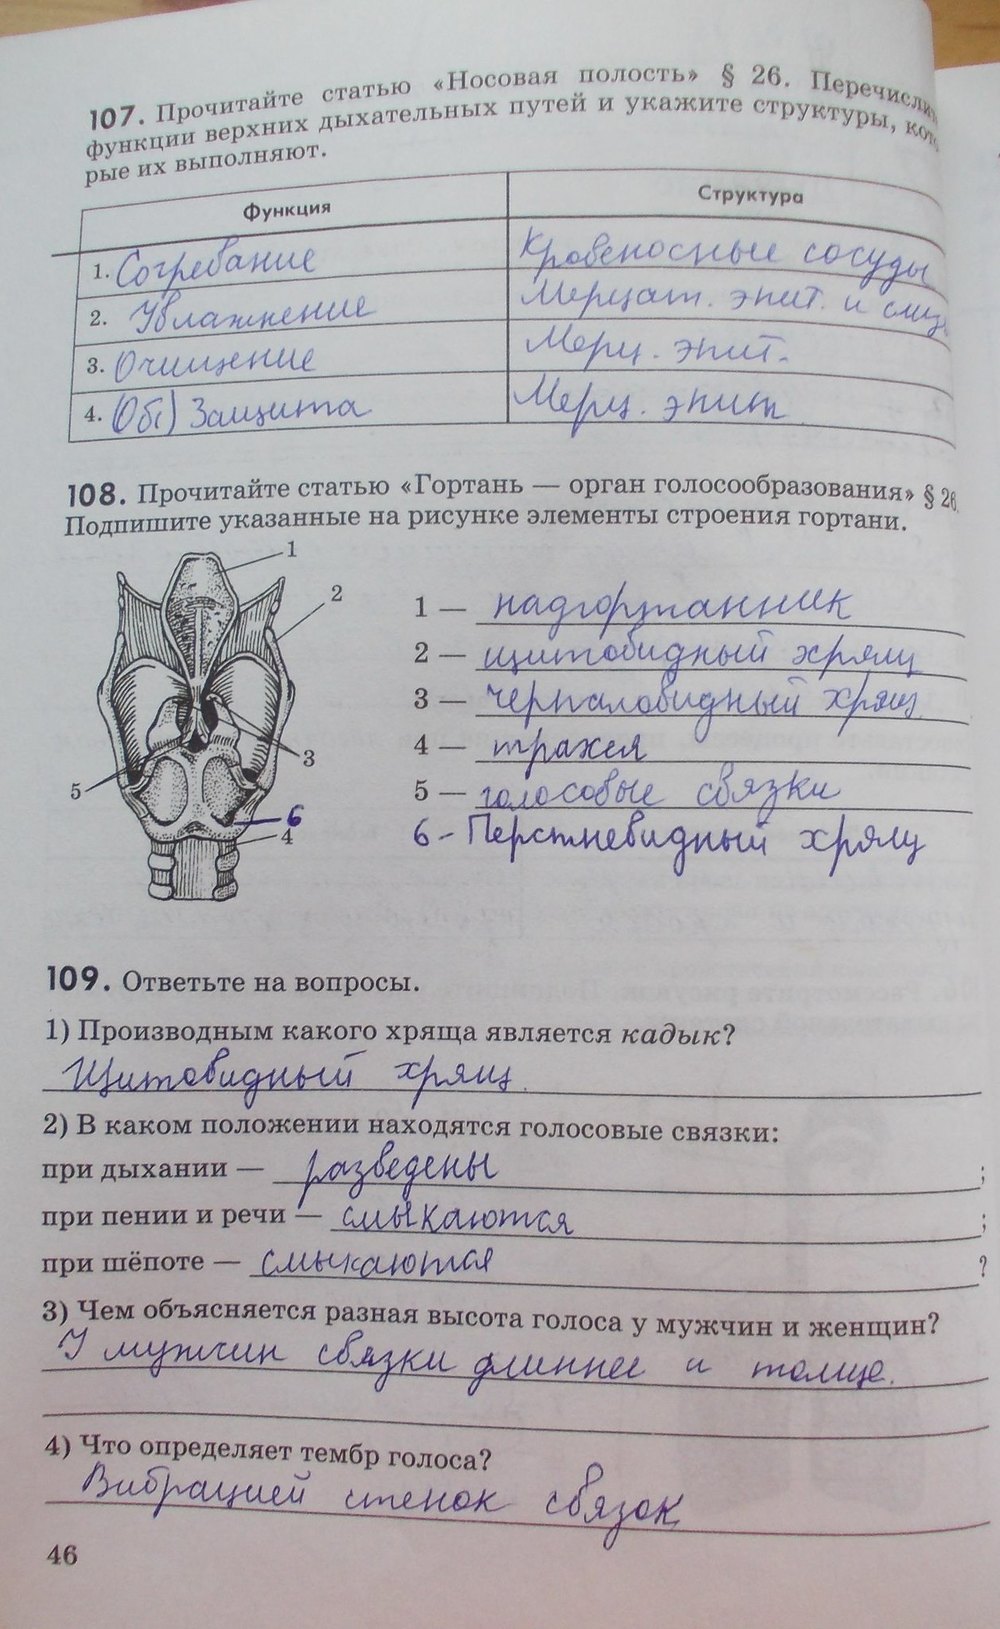 107. Прочитайте статью «Носовая полость» § 26. Перечислите
функции верхних дыхательных путей и укажите структуры, кото
рые их выполняют.
Функция Структура
1. Согревание Кровеносные сосуды
2. Увлажнение Мерцат. эпит. и слизь
3. Очищение Мерц. эпит.
4. (Об) Защита Мерц. эпит
108. Прочитайте статью «Гортань — орган голосообразования» § 26.
Подпишите указанные на рисунке элементы строения гортани.
1
2
3
5
6
4
1 — надгортанник
2 — щитовидный хрящ
3 — черпаловидный хрящ
4 — трахея
5 — голосовые связки
6 - Перстневидный хрящ
109. Ответьте на вопросы.
1) Производным какого хряща является кадык?
Щитовидный хрящ.
2) В каком положении находятся голосовые связки:
при дыхании — разведены ;
при пении и речи — смыкаются ;
при шёпоте — смыкаются ?
3) Чем объясняется разная высота голоса у мужчин и женщин?
У мужчин связки длиннее и толще.
4) Что определяет тембр голоса?
Вибрацией стенок связок
46